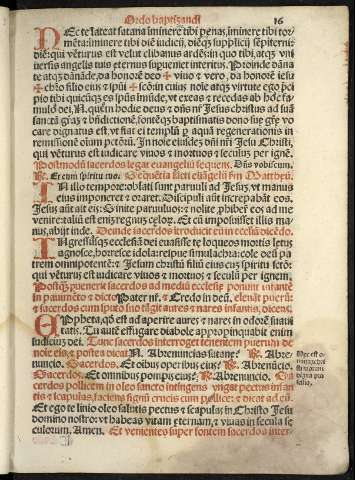 Ordo baptizandi 16
NEc te lateat satana iminere tibi penas, iminere tibi tor-
mēta: iminere tibi diē iudicij, diēq; supplicij sepiterni:
diē: qui vēturus est velut clibanus ardēs: in quo tibi, atq; vni
uersis angelis tuis eternus superueniet interitus. Proinde dāna
te atq; dānāde, da honorē deo ✠ viuo & vero, da honorē iesu
✠ chro filio eius & spūi ✠ scō: in cuius noīe atq; virtute
pio tibi quicūq; es spūs imūde, vt exeas & recedas ab hoc fa-
mulo dei, N. quem hodie deus & dns nr Jesus christus ad suā
sanctā grām & bndictionē, fontēq; baptismatis dono
vocare dignatus est, vt fiat ei templū aquā regenerationis in
remissionē oīum pctōrū. In noīe eiusdē dni nri Jesu Christi,
qui vēturus est iudicare viuos & mortuos & seculum per ignē.
Postmodū sacerdos legat euangeliū sequens. Dns vobiscum.
℟. Et cum spiritu tuo. Sequētia scti euāgelij sm Mattheū.
IN illo tempore: oblati sunt paruuli ad Jesus, vt manus
eis imponeret & oraret. Discipuli aūt increpabāt eos.
Jesus aūt ait eis: Sinite paruulos: & nolite phibere eos ad me
venire: taliū est enim regnum celor. Et cū imposuisset illis ma
nus, abijt inde. Deinde sacerdos introducit eū in ecclesiā dicēdo.
INgressusq; ecclesiā dei euasisse te laqueos mortis letus
agnosce, horresce idola: respue simulachra: cole deū pa-
trem omnipotentē: & Jesum christū filiū eius cum spiritu scto:
qui vēturus est iudicare viuos & mortuos & seculū per ignem.
Postq; puenerit sacerdos ad mediū ecclesie ponunt infantē
in pauimēto & dicto Pater nr, & Credo in deū. eleuāt puerū:
& sacerdos cum sputo suo tāgit aures & nares infantis, dicens.
OPpheta, qd est ad aperire aures; & nares in odorē suaui
tatis. Tu autē effugare diabole appropinquabit enim
iudicium dei. Tunc sacerdos interroget tenentem puerum de
noīe eius & postea dicat N. Abrenuncias satane? ℟. Abre-
nuncio. Sacerdos. Et oībus operibus eius? ℟. Abrenūcio.
Sacerdos. Et omnibus pompis eius? ℟. Abrenuncio. Dia
cerdos pollicem in oleo sancto intingens vngat pectus infan
tis & scapulas, faciens signū crucis cum pollice: & dicat ad eū.
Et ego te linio oleo salutis pectus & scapulas, in Christo Jesu
domino nostro: vt habeas vitam eternam, & viuas in secula se
culorum, Amen. Et venientes super fontem sacerdos inter-